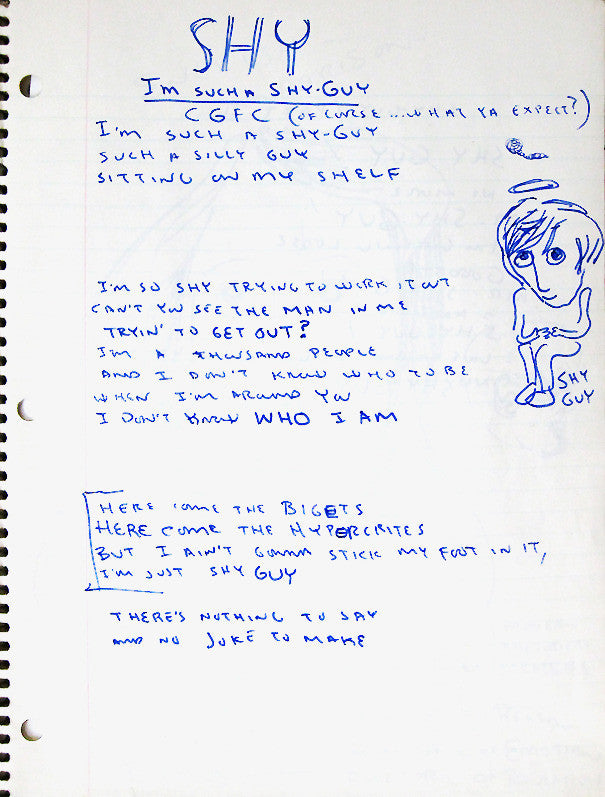 SHY
I'M SUCH A SHY-GUY
C G F C (OF CURSE ... WHAT YA EXPECT?)
I'M SUCH A SHY-GUY
SUCH A SILLY GUY
SITTING ON MY SHELF
I'M SO SHY TRYING TO WORK IT OUT
CAN'T YOU SEE THE MAN IN ME
TRYIN' TO GET OUT?
I'M A THOUSAND PEOPLE
AND I DON'T KNOW WHO TO BE
WHEN I'M AROUND YOU
I DON'T KNOW WHO I AM
SHY
GUY
HERE COME THE BIGETS
HERE COME THE HYPERCRITES
BUT I AIN'T GONNA STICK MY FOOT IN IT,
I'M JUST SHY GUY
THERE'S NOTHING TO SAY
AND NO JOKE TO MAKE